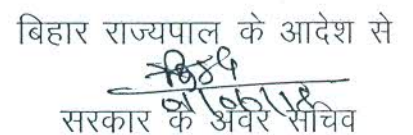 बिहार राज्यपाल के आदेश से
सरकार के अवर सचिव